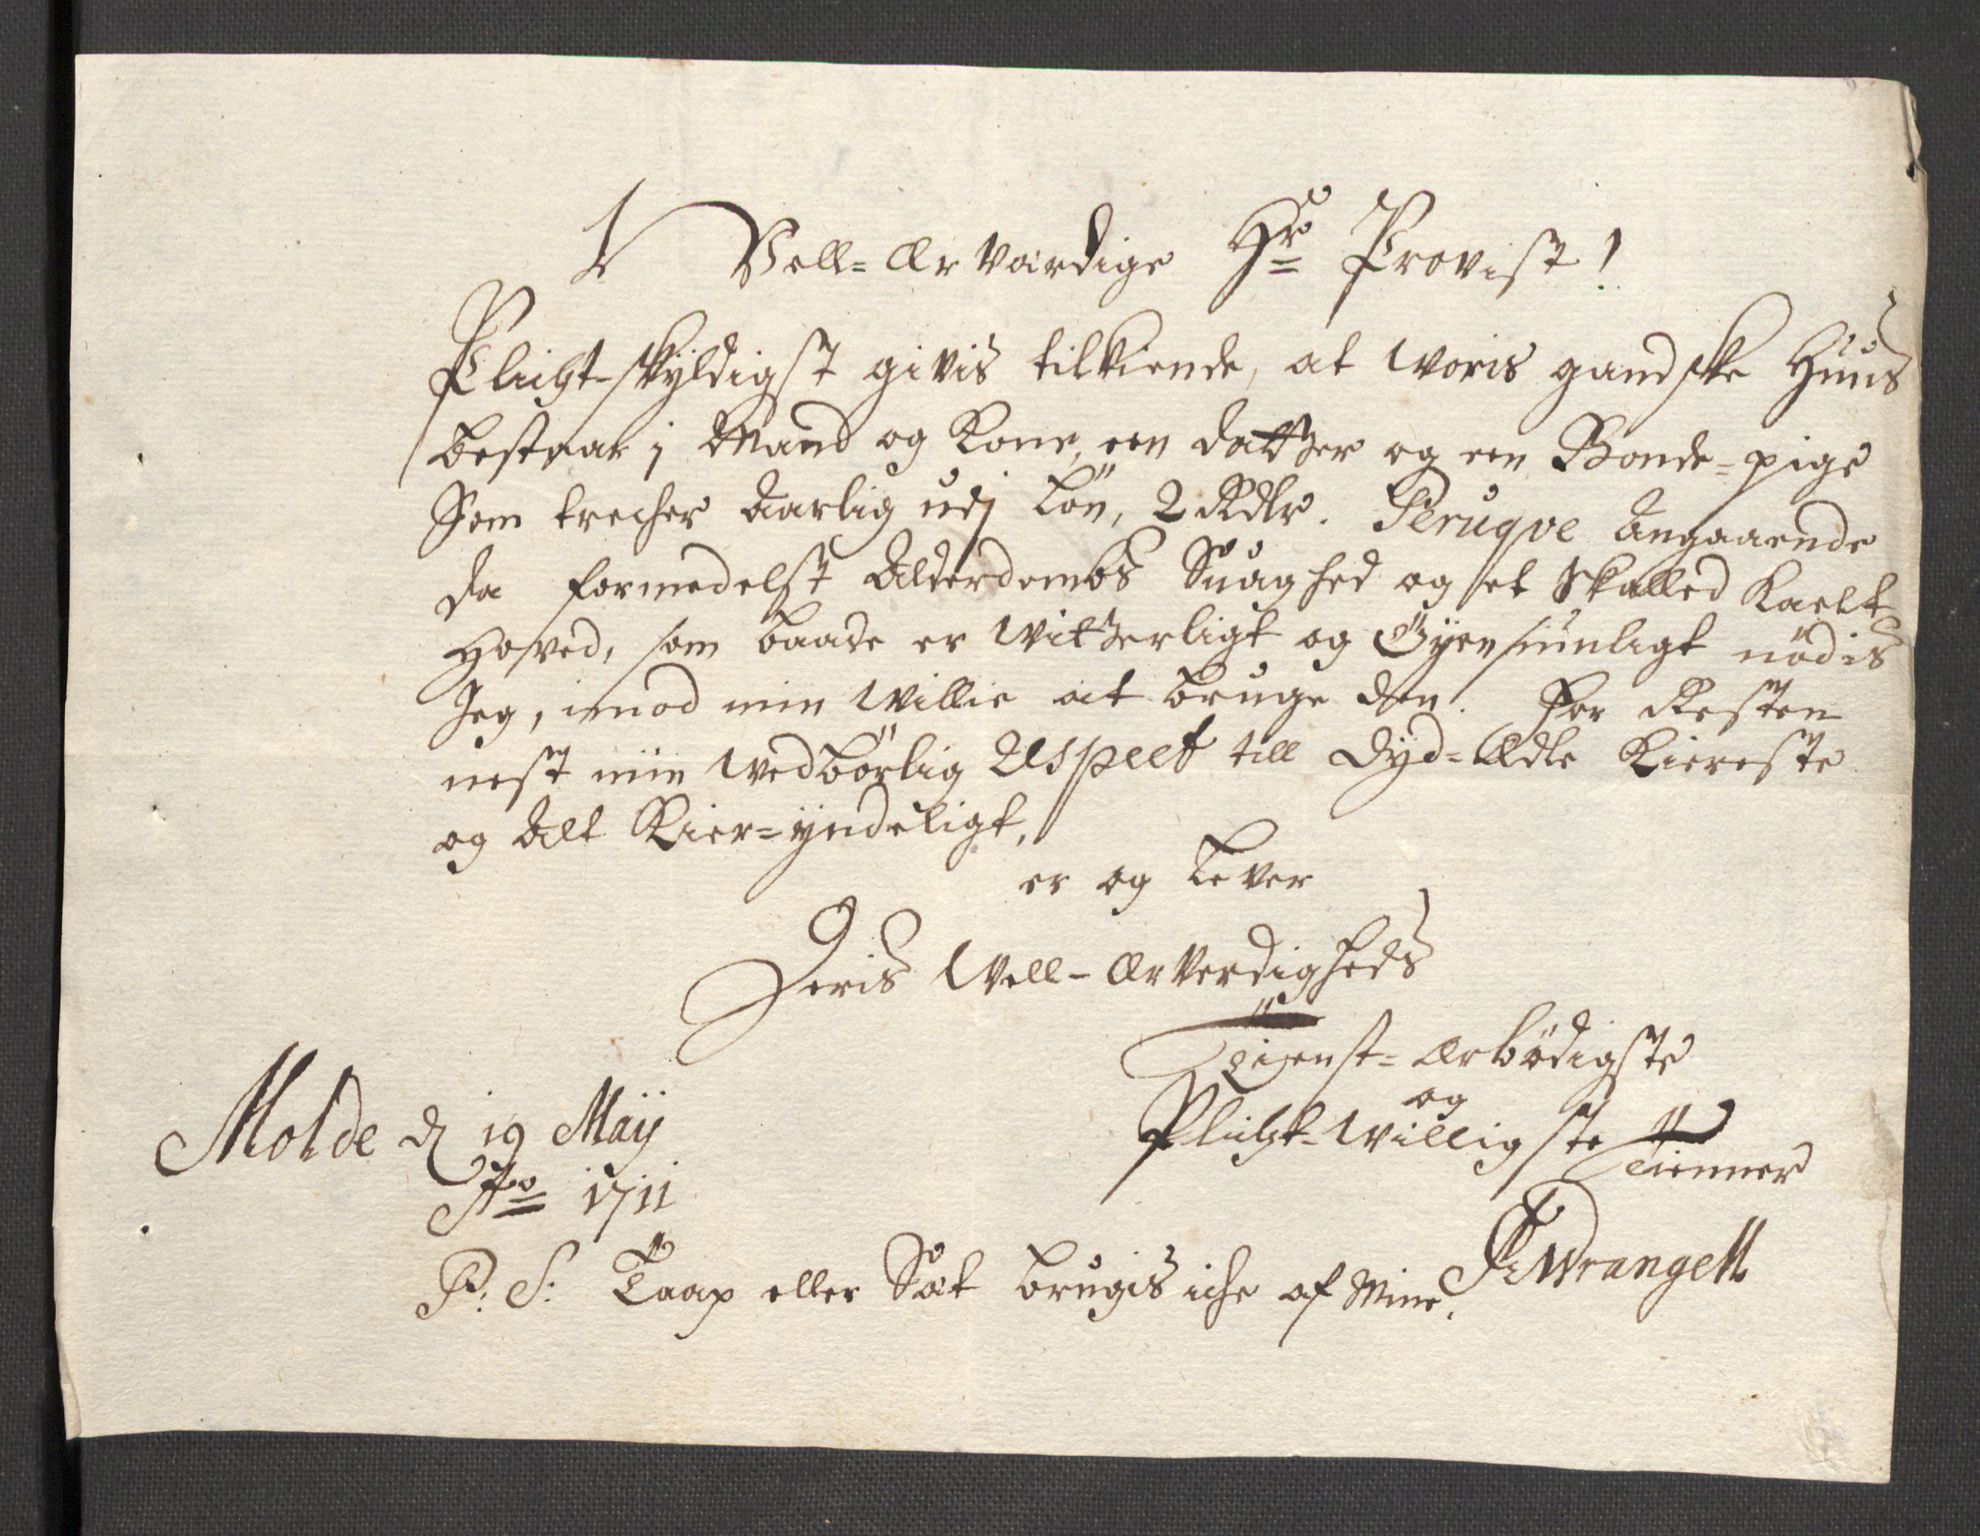 Vell-Ærværdige Hr Provist!
Plicht-skÿldigst givis tilkiende, at woris gandske Huus
bestaar j Mand og Kone, een datter og een Bonde-pige
Som trecher Aarlig udj Løn, 2 Rdlr. Peruqve Angaaende
da formedelst Alderdombs Suaghed og et Skalled Kaelt
Hoved, som baade er witterligt og Øÿensiünligt nødis
Jeg, imod min Willie at bruge den. For Resten
nest min wedbørlig Respect till Dyd-Ædle Kiereste
og Alt Kier-ÿndeligt,
er og Lever
Deris Well-ærverdigheds
Tienst-ærbødigste
og
Plicht-willigste Tienner
Molde d 19 Maÿ
Ao 1711
FWrangell
P: S: Taap eller Sæt brugis iche af Mine.